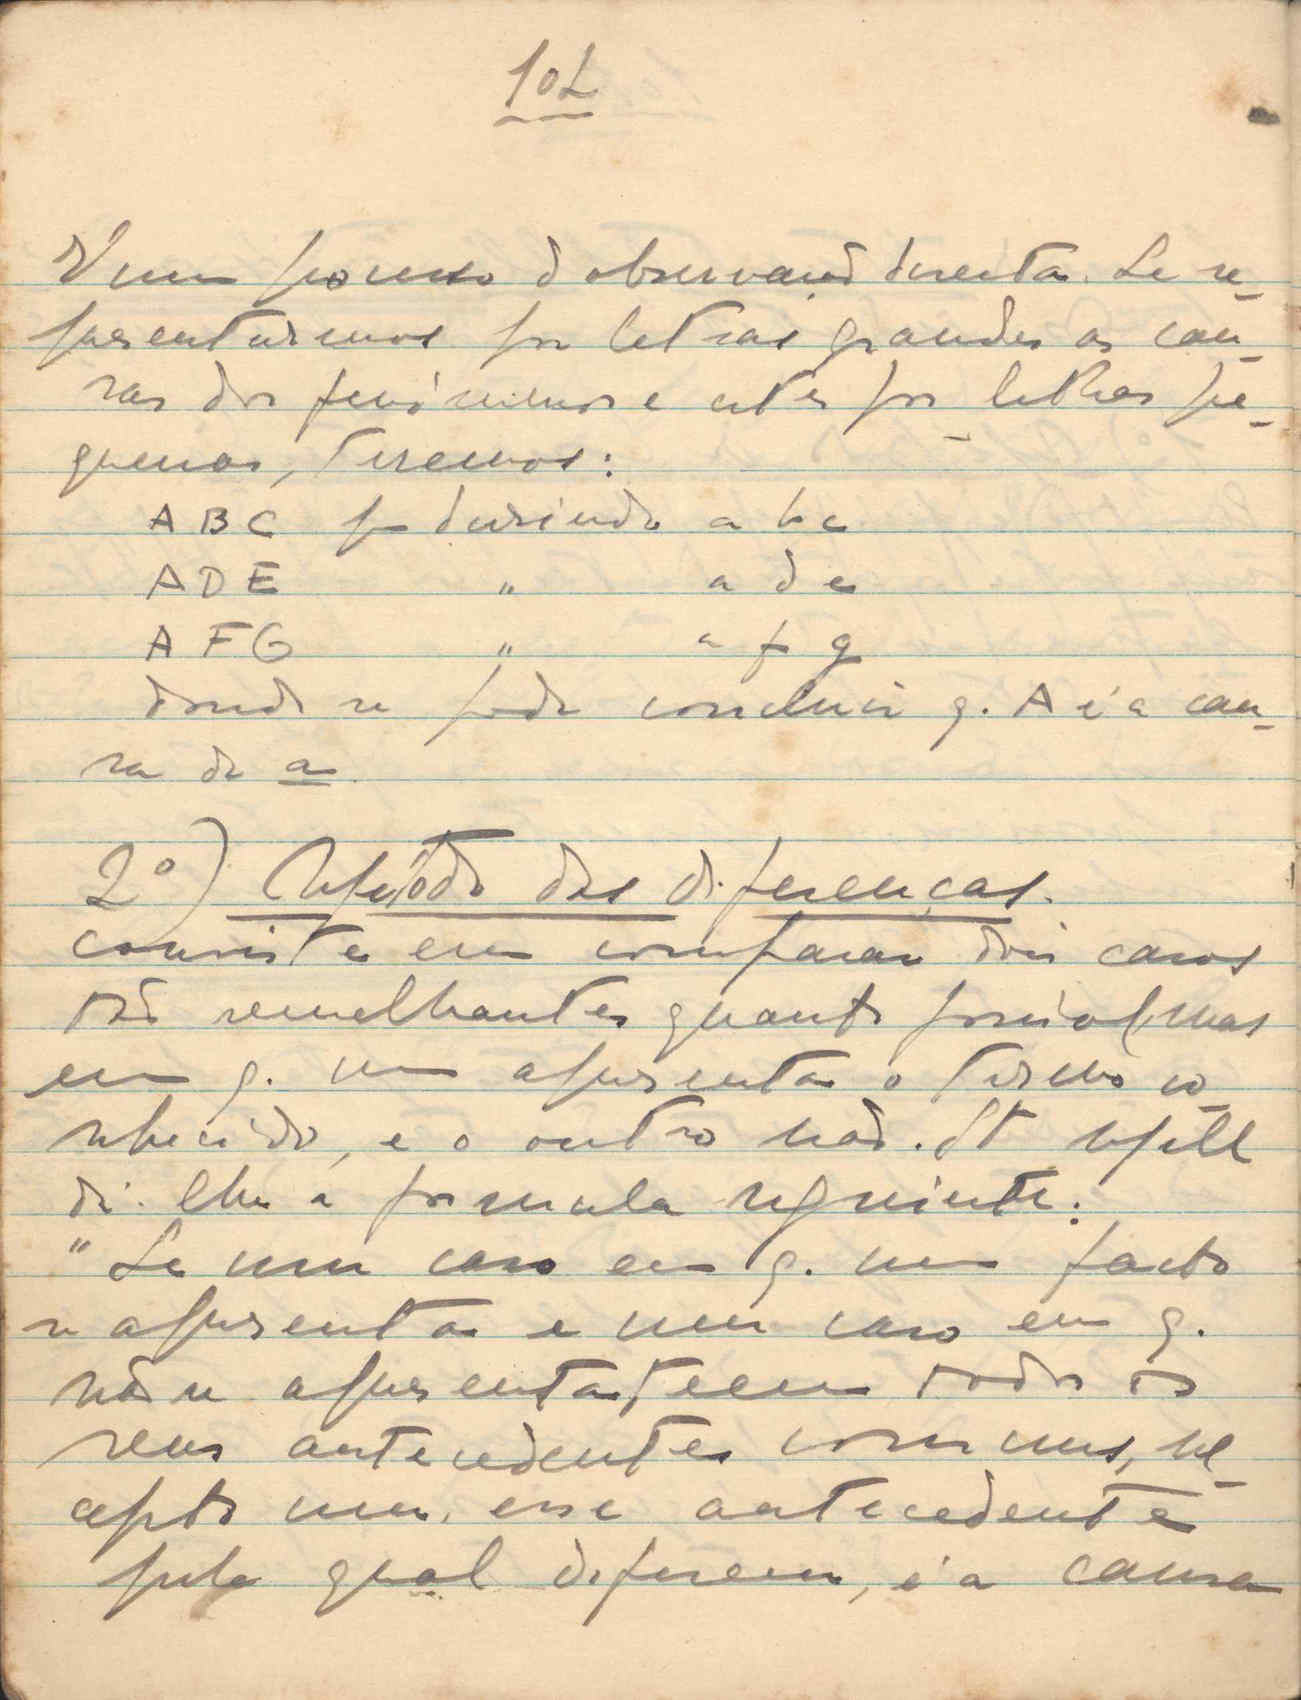 102
É um processo d observação directa. Se re-
presentarmos por letras grandes as cau-
sas dos fenómenos e estes por letras pe-
quenas, teremos:
ABC produzindo a b c
ADE " a d e
AFG " a f g
donde se pode concluir q. A é a cau-
sa de a
2º) Método das diferenças.
consiste em comparar dois casos
tão semelhantes quanto possível, mas
em q. um apresenta o termo co-
nhecido, e o outro não. St Mill
dá-lhe a formula seguinte:
" Se um caso em q. um facto
se apresenta e um caso em q.
não se apresenta, teem todos os
seus antecedentes comuns, ex-
cepto um, esse antecedente
pelo qual diferem, é a causa